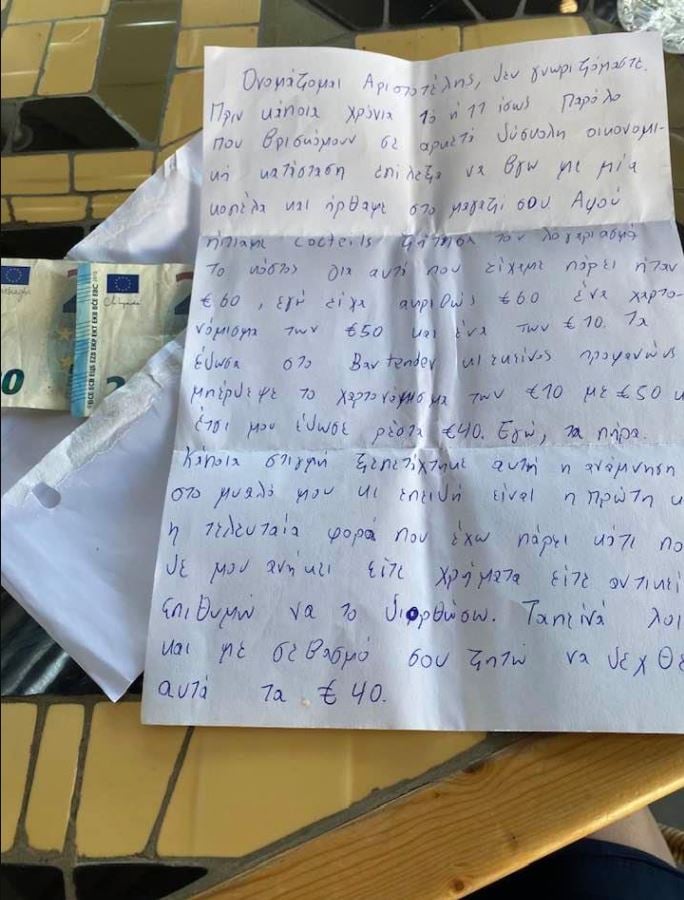 Ονομάζομαι Αριστοτέλης, δεν γνωριζόμαστε.
Πριν κάποια χρόνια 10 ή 11 ίσως Παρόλο
που βρισκόμουν σε αρκετά δύσκολη οικονομι-
κή κατάσταση επέλεξα να βγω με μία
κοπέλα και ήρθαμε στο μαγαζί σου Αφού
ήπιαμε cocteils ζήτησα τον λογαριασμό
Το κόστος για αυτά που είχαμε πάρει ήταν
€60, εγώ είχα ακριβώς €60 ένα χαρτο-
νόμισμα των €50 και ένα των €10. Τα
έδωσα στο Bartender κι εκείνος προφανώς
μπέρδεψε το χαρτονόμισμα των €10 με €50 κ
έτσι μου έδωσε ρέστα €40. Εγώ, τα πήρα.
Κάποια στιγμή ξεπετάχτηκε αυτή η ανάμνηση
στο μυαλό μου κι επειδή είναι η πρώτη κ
η τελευταία φορά που έχω πάρει κάτι πο
δε μου ανήκει είτε χρήματα είτε αντικεί
Επιθυμώ να το διορθώσω. Ταπεινά λοι
και με σεβασμό σου ζητώ να δεχθε
αυτά τα €40.